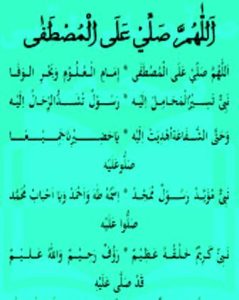 اَللّٰهُمَّ صَلِّيْ عَلَى الْمُصْطَفٰى
اَللّٰهُمَّ صَلِّيْ عَلَى الْمُصْطَفٰى * اِمَامِ الْعُلُوْمِ وَبَحْرِ الْوَفَا
نَبِيٌّ تَسِيْرُ الْمَحَامِلُ اِلَيْهِ * رَسُوْلٌ تُشَدُّ الرِّحَالُ اِلَيْهِ
وَحَتَّى الشَّفَاعَةُ اُهْدِيَتْ اِلَيْهِ *
صَلُّوْ عَلَيْهِ
نَبِيٌّ مُؤَيَّدْ رَسُوْلٌ مُمَجَّدْ * اِسْمُهُ طٰهَ وَاَحْمَدْ وَيَا اَحْبَابْ مُحَمَّدْ
صَلُّوا عَلَيْهِ
نَبِيٌّ كَرِيْمٌ خُلُقُهُ عَظِيْمْ * رَؤُفٌ رَحِيْمٌ وَاللهُ عَلِيْمْ
قَدْ صَلَّى عَلَيْهِ